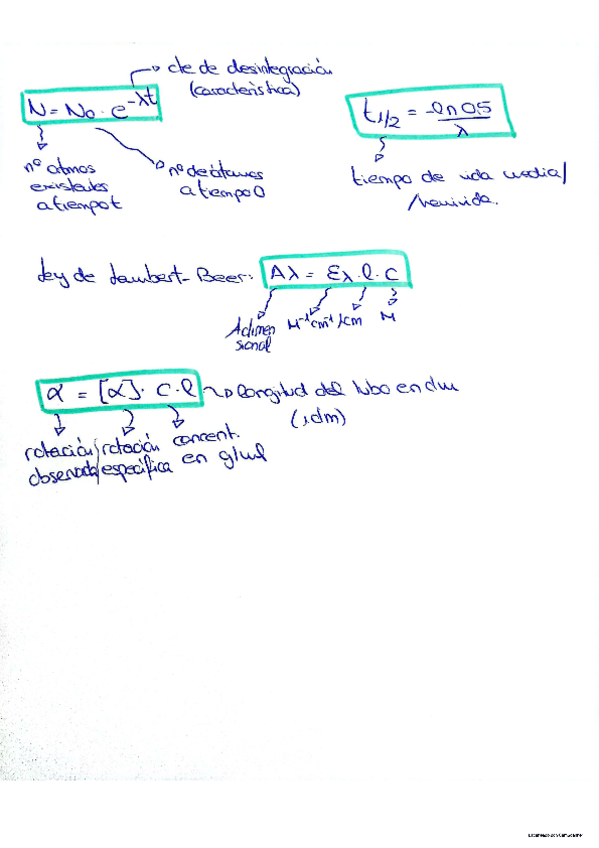 cte de desintegración
(característica)
N = No · e^-λt
t1/2 = -ln 0,5 / λ
nº atmos
existentes
a tiempo t
nº de átomos
a tiempo 0
tiempo de vida media/
/semivida.
Ley de Lambert-Beer: Aλ = Ελ · l · C
Adimen
sional
M⁻¹cm⁻¹
1cm
M
α = [α] · C · l → longitud del tubo en dm
(1dm)
rotación
observada
rotación
específica
concent.
en g/ml